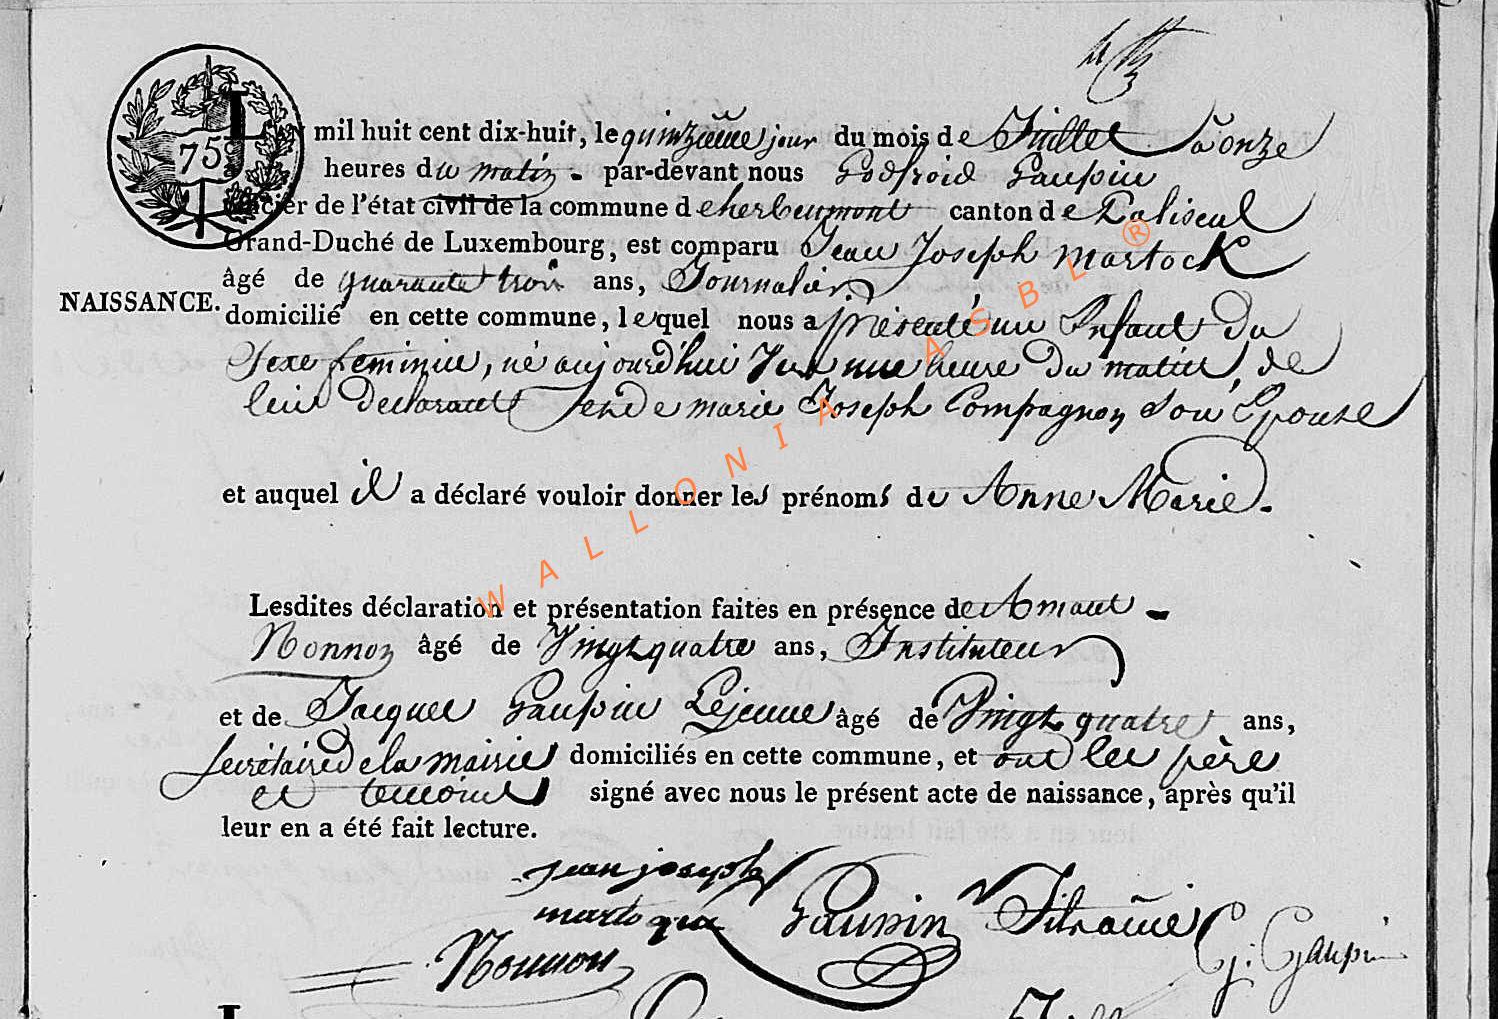 75
L'AN mil huit cent dix-huit, le quinzième jour du mois de Juillet à onze
heures du matin - par-devant nous Godfroid Gaupin
officier de l'état civil de la commune d'herbeumont canton de Paliseul
Grand-Duché de Luxembourg, est comparu Jean Joseph Martock
âgé de quarante trois ans, Journalier,
NAISSANCE.
domicilié en cette commune, lequel nous a présenté un Enfant du
Sexe feminin, né aujourd'hui Sur une heure du matin, de
lui declarant et de marie Joseph Compagnon Son Epouse
et auquel il a déclaré vouloir donner les prénoms de Anne Marie.
Lesdites déclaration et présentation faites en présence de Amant -
Nonnon âgé de Vingt quatre ans, Instituteur
et de Jacques Gaupin Lejeune âgé de Vingt quatre ans,
secrétaire de la mairie domiciliés en cette commune, et ont les père
et temoins signé avec nous le présent acte de naissance, après qu'il
leur en a été fait lecture.
jean joseph
martoque Gaupin
Nonnon G: Gaupin
WALLONIA ASBL ®